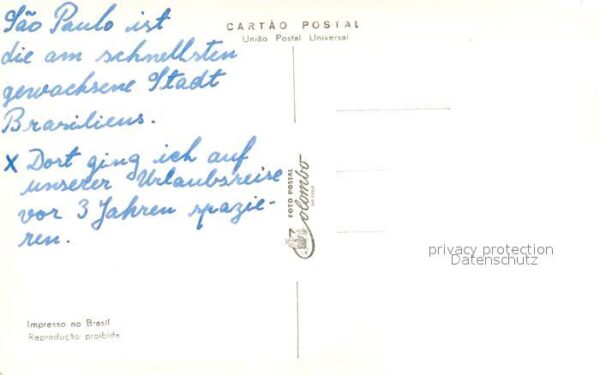 São Paulo ist
die am schnellsten
gewachsene Stadt
Brasiliens.
x Dort ging ich auf
unserer Urlaubsreise
vor 3 Jahren spazie-
ren.
CARTÃO POSTAL
União Postal Universal
FOTO POSTAL
Colombo
privacy protection
Datenschutz
Impresso no Brasil
Reprodução proibida